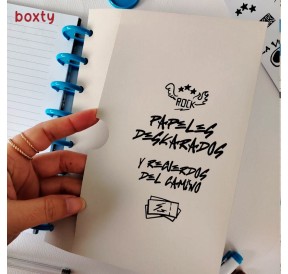 boxty
ROCK
PAPELES
DESKARADOS
Y RECUERDOS
DEL CAMINO